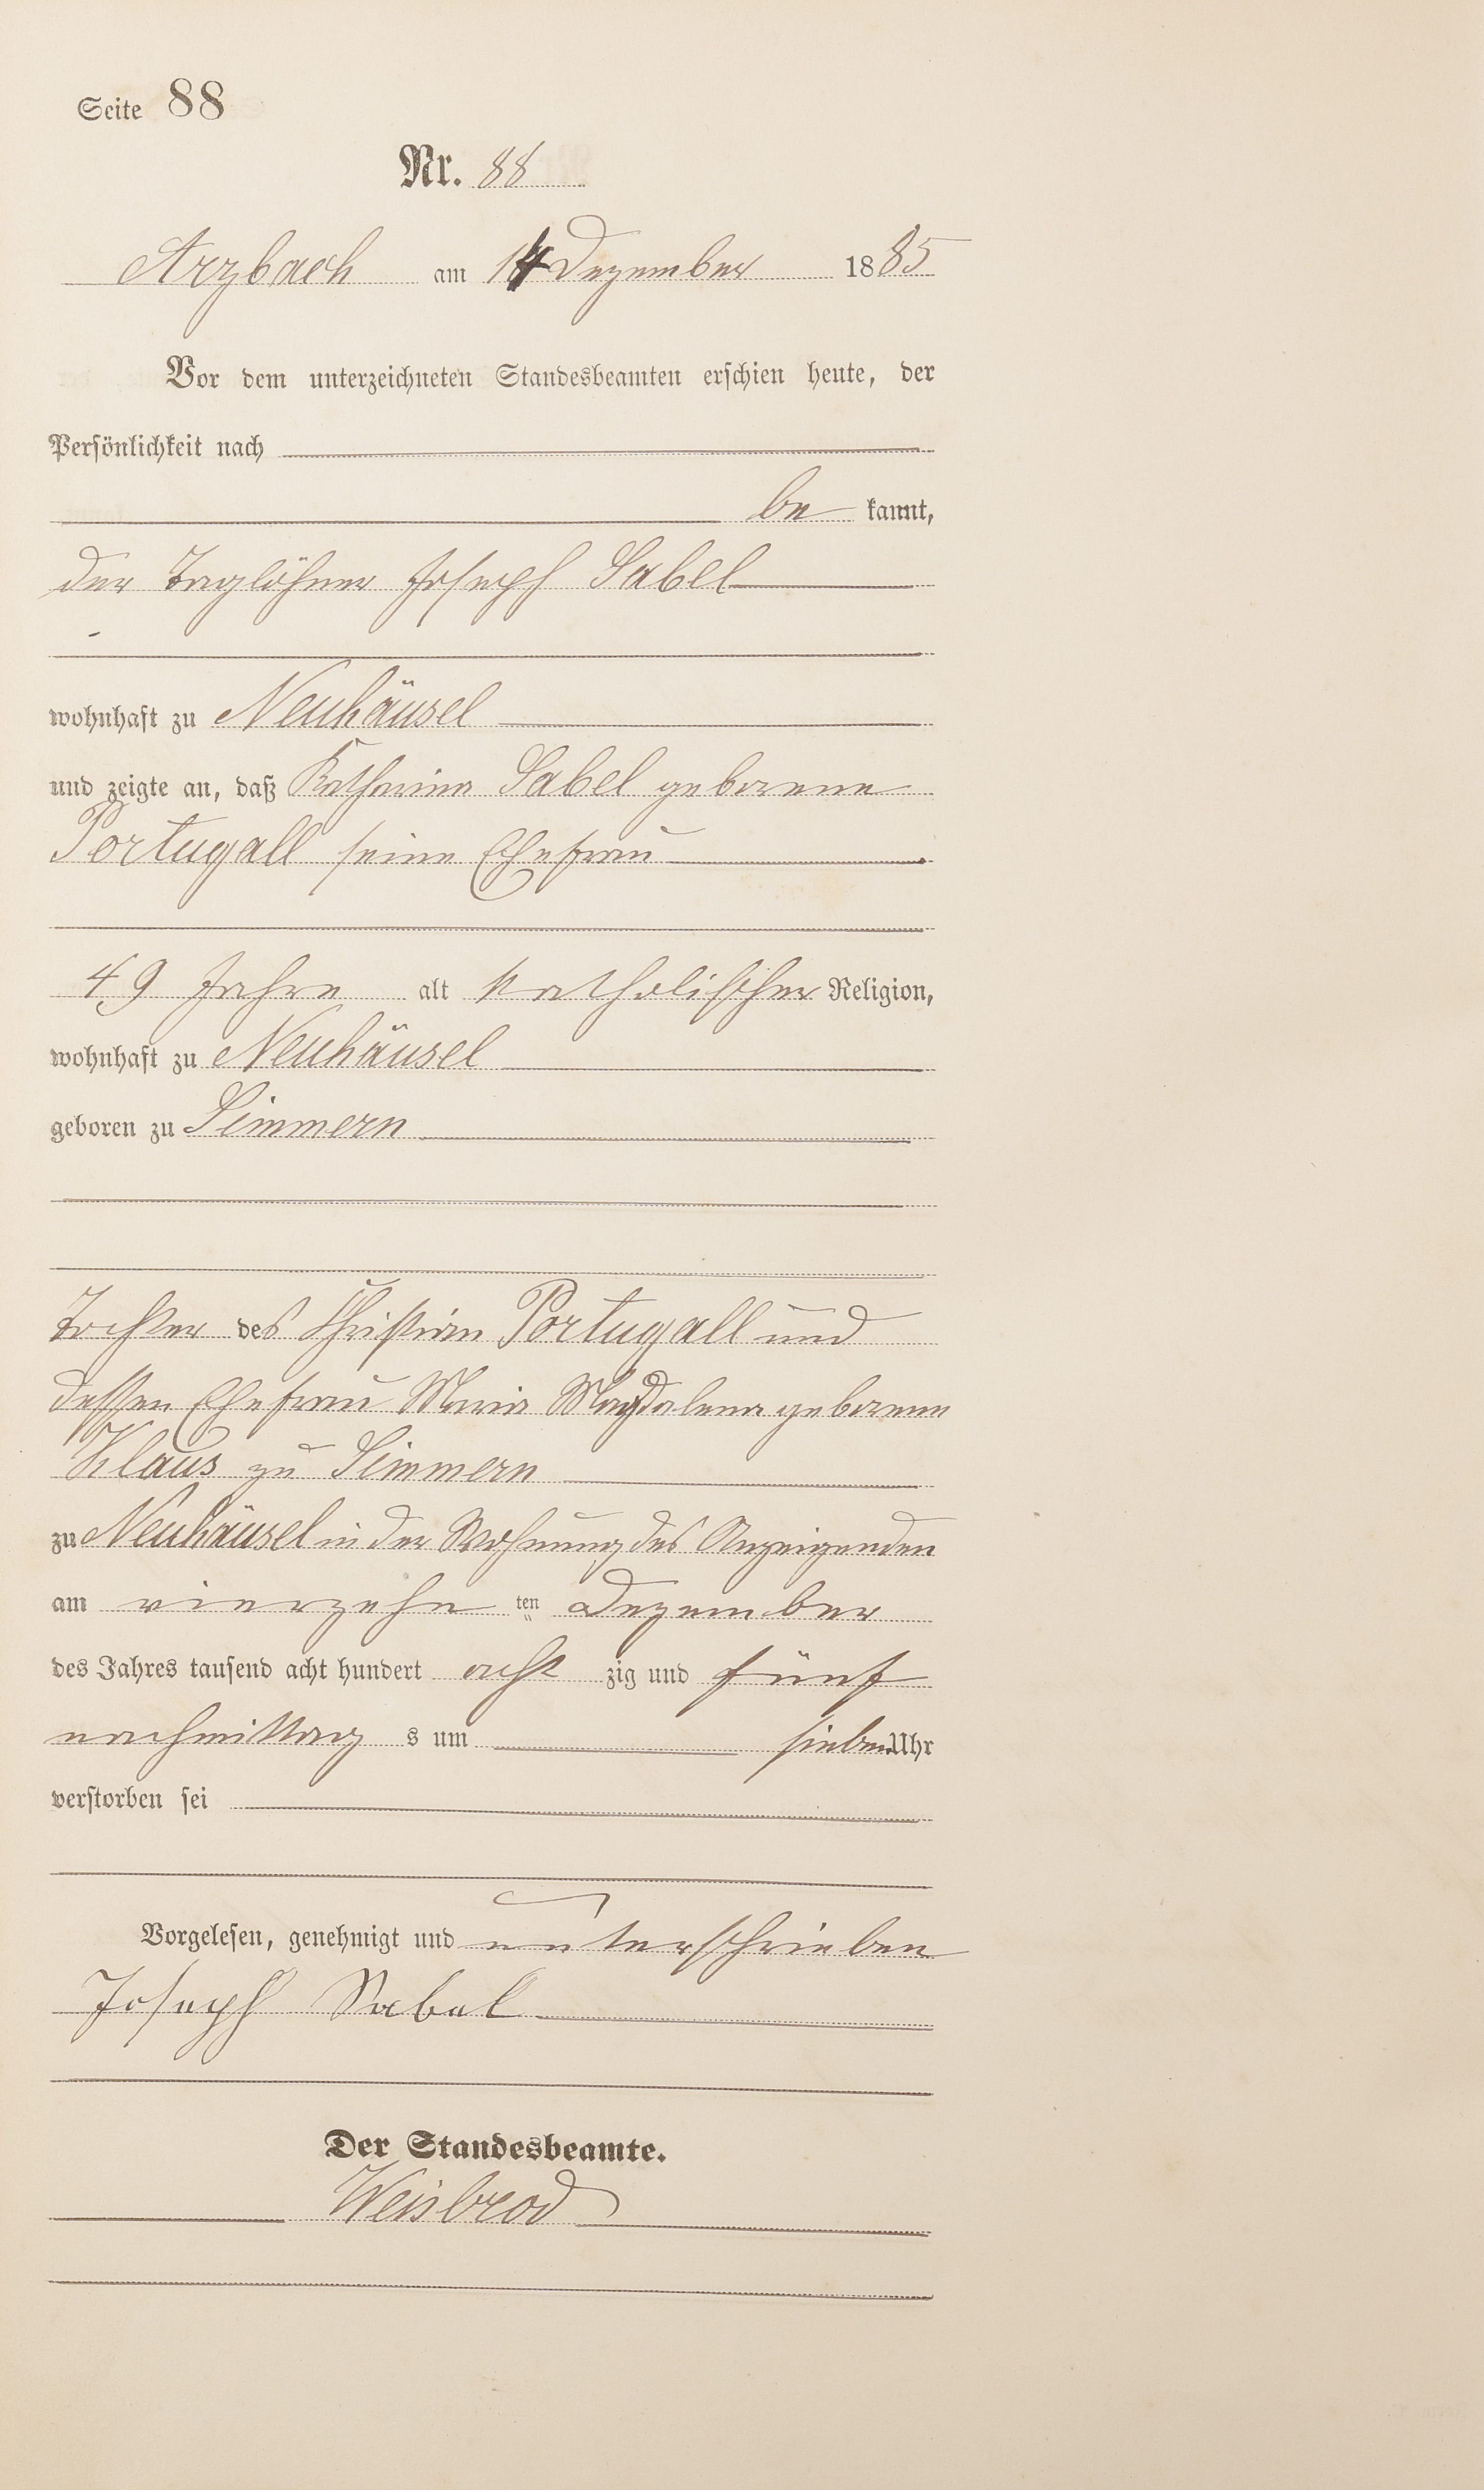 Seite 88
Nr. 88
Arzbach am 14 Dezember 1885
Vor dem unterzeichneten Standesbeamten erschien heute, der
Persönlichkeit nach
be kannt,
der Taglöhner Joseph Sabel
wohnhaft zu Neuhäusel
und zeigte an, daß Katharina Sabel geborene
Portugall seine Ehefrau
49 Jahre alt katholischer Religion,
wohnhaft zu Neuhäusel
geboren zu Simmern
Tochter des Christian Portugall und
dessen Ehefrau Maria Magdalena geborene
Klaus zu Simmern
zu Neuhäusel in der Wohnung des Anzeigenden
am vierzehn ten Dezember
des Jahres tausend acht hundert acht zig und fünf
nachmittag s um sieben Uhr
verstorben sei
Vorgelesen, genehmigt und unterschrieben
Joseph Sabel
Der Standesbeamte.
Weisbrod